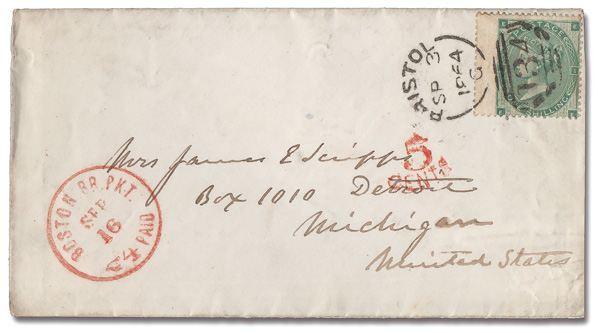 BRISTOL
SP 3
1864
134
POSTAGE
ONE SHILLING
5
CENTS
Mrs James E Scripps
Box 1010 Detroit
Michigan
United States
BOSTON BR. PKT.
SEP
16
24 PAID